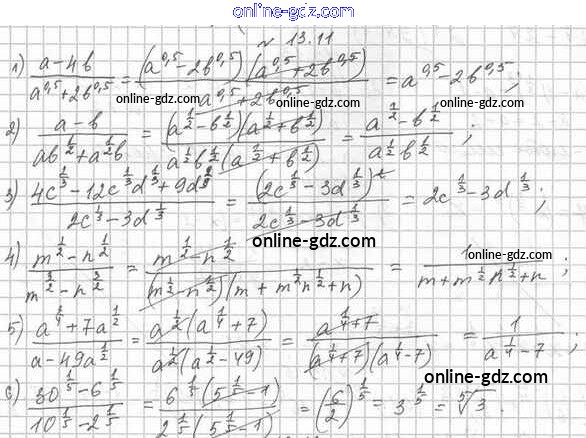 online-gdz.com
№ 13.11
1) (a-4b)/(a^0,5+2b^0,5) = (a^0,5-2b^0,5)(a^0,5+2b^0,5)/(a^0,5+2b^0,5) = a^0,5-2b^0,5;
online-gdz.com online-gdz.com online-gdz.com
2) (a-b)/(ab^(1/2)+a^(1/2)b) = (a^(1/2)-b^(1/2))(a^(1/2)+b^(1/2))/(a^(1/2)b^(1/2)(a^(1/2)+b^(1/2))) = (a^(1/2)-b^(1/2))/(a^(1/2)b^(1/2));
3) (4c^(2/3)-12c^(1/3)d^(1/3)+9d^(2/3))/(2c^(1/3)-3d^(1/3)) = (2c^(1/3)-3d^(1/3))^2/(2c^(1/3)-3d^(1/3)) = 2c^(1/3)-3d^(1/3);
online-gdz.com
4) (m^(1/2)-n^(1/2))/(m^(3/2)-n^(3/2)) = (m^(1/2)-n^(1/2))/((m^(1/2)-n^(1/2))(m+m^(1/2)n^(1/2)+n)) = 1/(m+m^(1/2)n^(1/2)+n);
5) (a^(3/4)+7a^(1/2))/(a-49a^(1/2)) = a^(1/2)(a^(1/4)+7)/(a^(1/2)(a^(1/2)-49)) = (a^(1/4)+7)/((a^(1/4)+7)(a^(1/4)-7)) = 1/(a^(1/4)-7);
6) (30^(1/5)-6^(1/5))/(10^(1/5)-2^(1/5)) = 6^(1/5)(5^(1/5)-1)/(2^(1/5)(5^(1/5)-1)) = (6/2)^(1/5) = 3^(1/5) = ⁵√3.
online-gdz.com